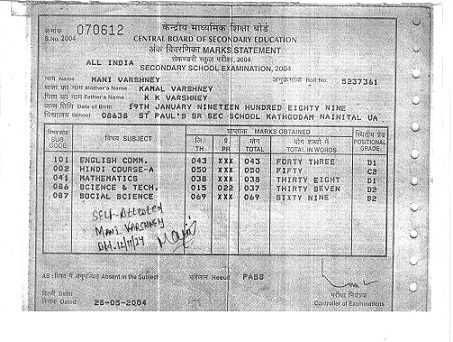 क्रमांक 070612
S.No. 2004
केन्द्रीय माध्यमिक शिक्षा बोर्ड
CENTRAL BOARD OF SECONDARY EDUCATION
अंक विवरणिका MARKS STATEMENT
सेकण्डरी स्कूल परीक्षा, 2004
ALL INDIA SECONDARY SCHOOL EXAMINATION, 2004
नाम Name MANI VARSHNEY अनुक्रमांक Roll No. 5237361
माता का नाम Mother's Name KAMAL VARSHNEY
पिता का नाम Father's Name K K VARSHNEY
जन्म तिथि Date of Birth 19TH JANUARY NINETEEN HUNDRED EIGHTY NINE
विद्यालय School 08638 ST PAUL'S SR SEC SCHOOL KATHGODAM NAINITAL UA
SUB. CODE विषय SUBJECT प्राप्तांक MARKS OBTAINED POSITIONAL GRADE
TH. PR योग TOTAL TOTAL IN WORDS
101 ENGLISH COMM. 043 XXX 043 FORTY THREE D1
002 HINDI COURSE-A 050 XXX 050 FIFTY C2
041 MATHEMATICS 038 XXX 038 THIRTY EIGHT D1
086 SCIENCE & TECH. 015 022 037 THIRTY SEVEN D2
087 SOCIAL SCIENCE 069 XXX 069 SIXTY NINE B2
Self-Attested
MANI VARSHNEY
Absent in the Subject परिणाम Result PASS
दिल्ली Delhi
दिनांक Dated 26-05-2004
परीक्षा नियंत्रक
Controller of Examinations